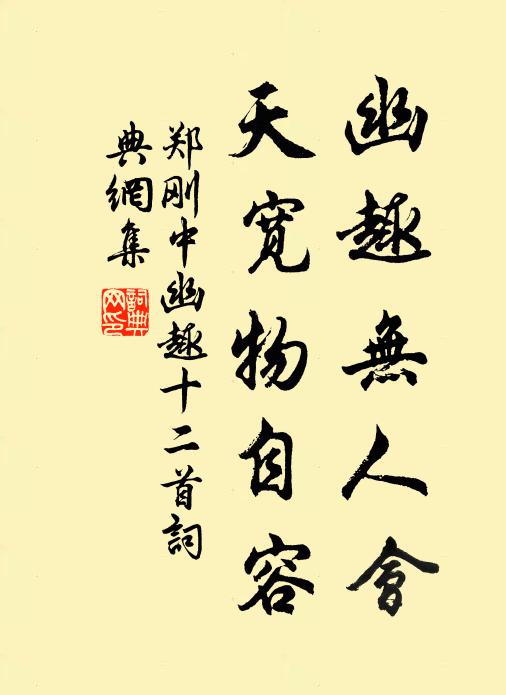 幽趣無人會
天寬物自容
郑刚中幽趣十二首詞
典網集
詞典網印